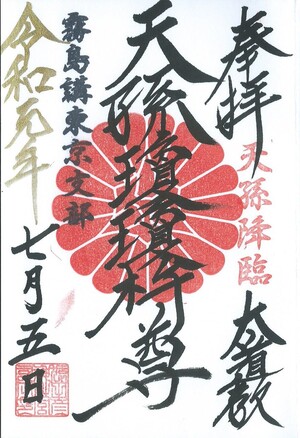 奉拝
天孫降臨
太道教
天孫瓊瓊杵尊
霧島講東京支部
令和元年
七月五日